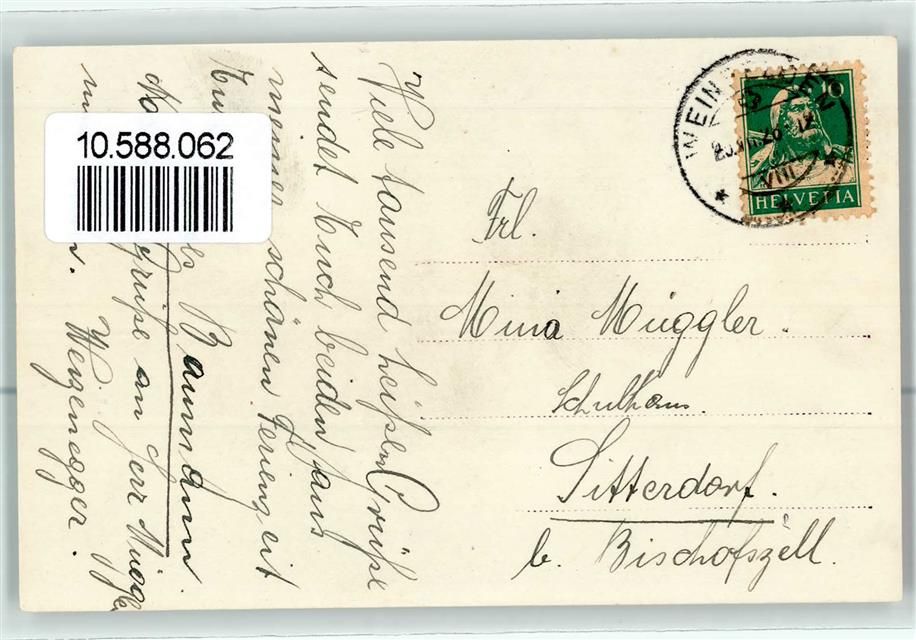 Viele tausend heißen Grüße
sendet Euch beiden aus
meinen schönen Ferienzeit
Baumann
Grüße an Herr Müggler
W. Weizenegger.
10.588.062
WEINFELDEN
VIII
10
HELVETIA
Frl.
Mina Müggler.
Schulhaus.
Sitterdorf.
b. Bischofszell.